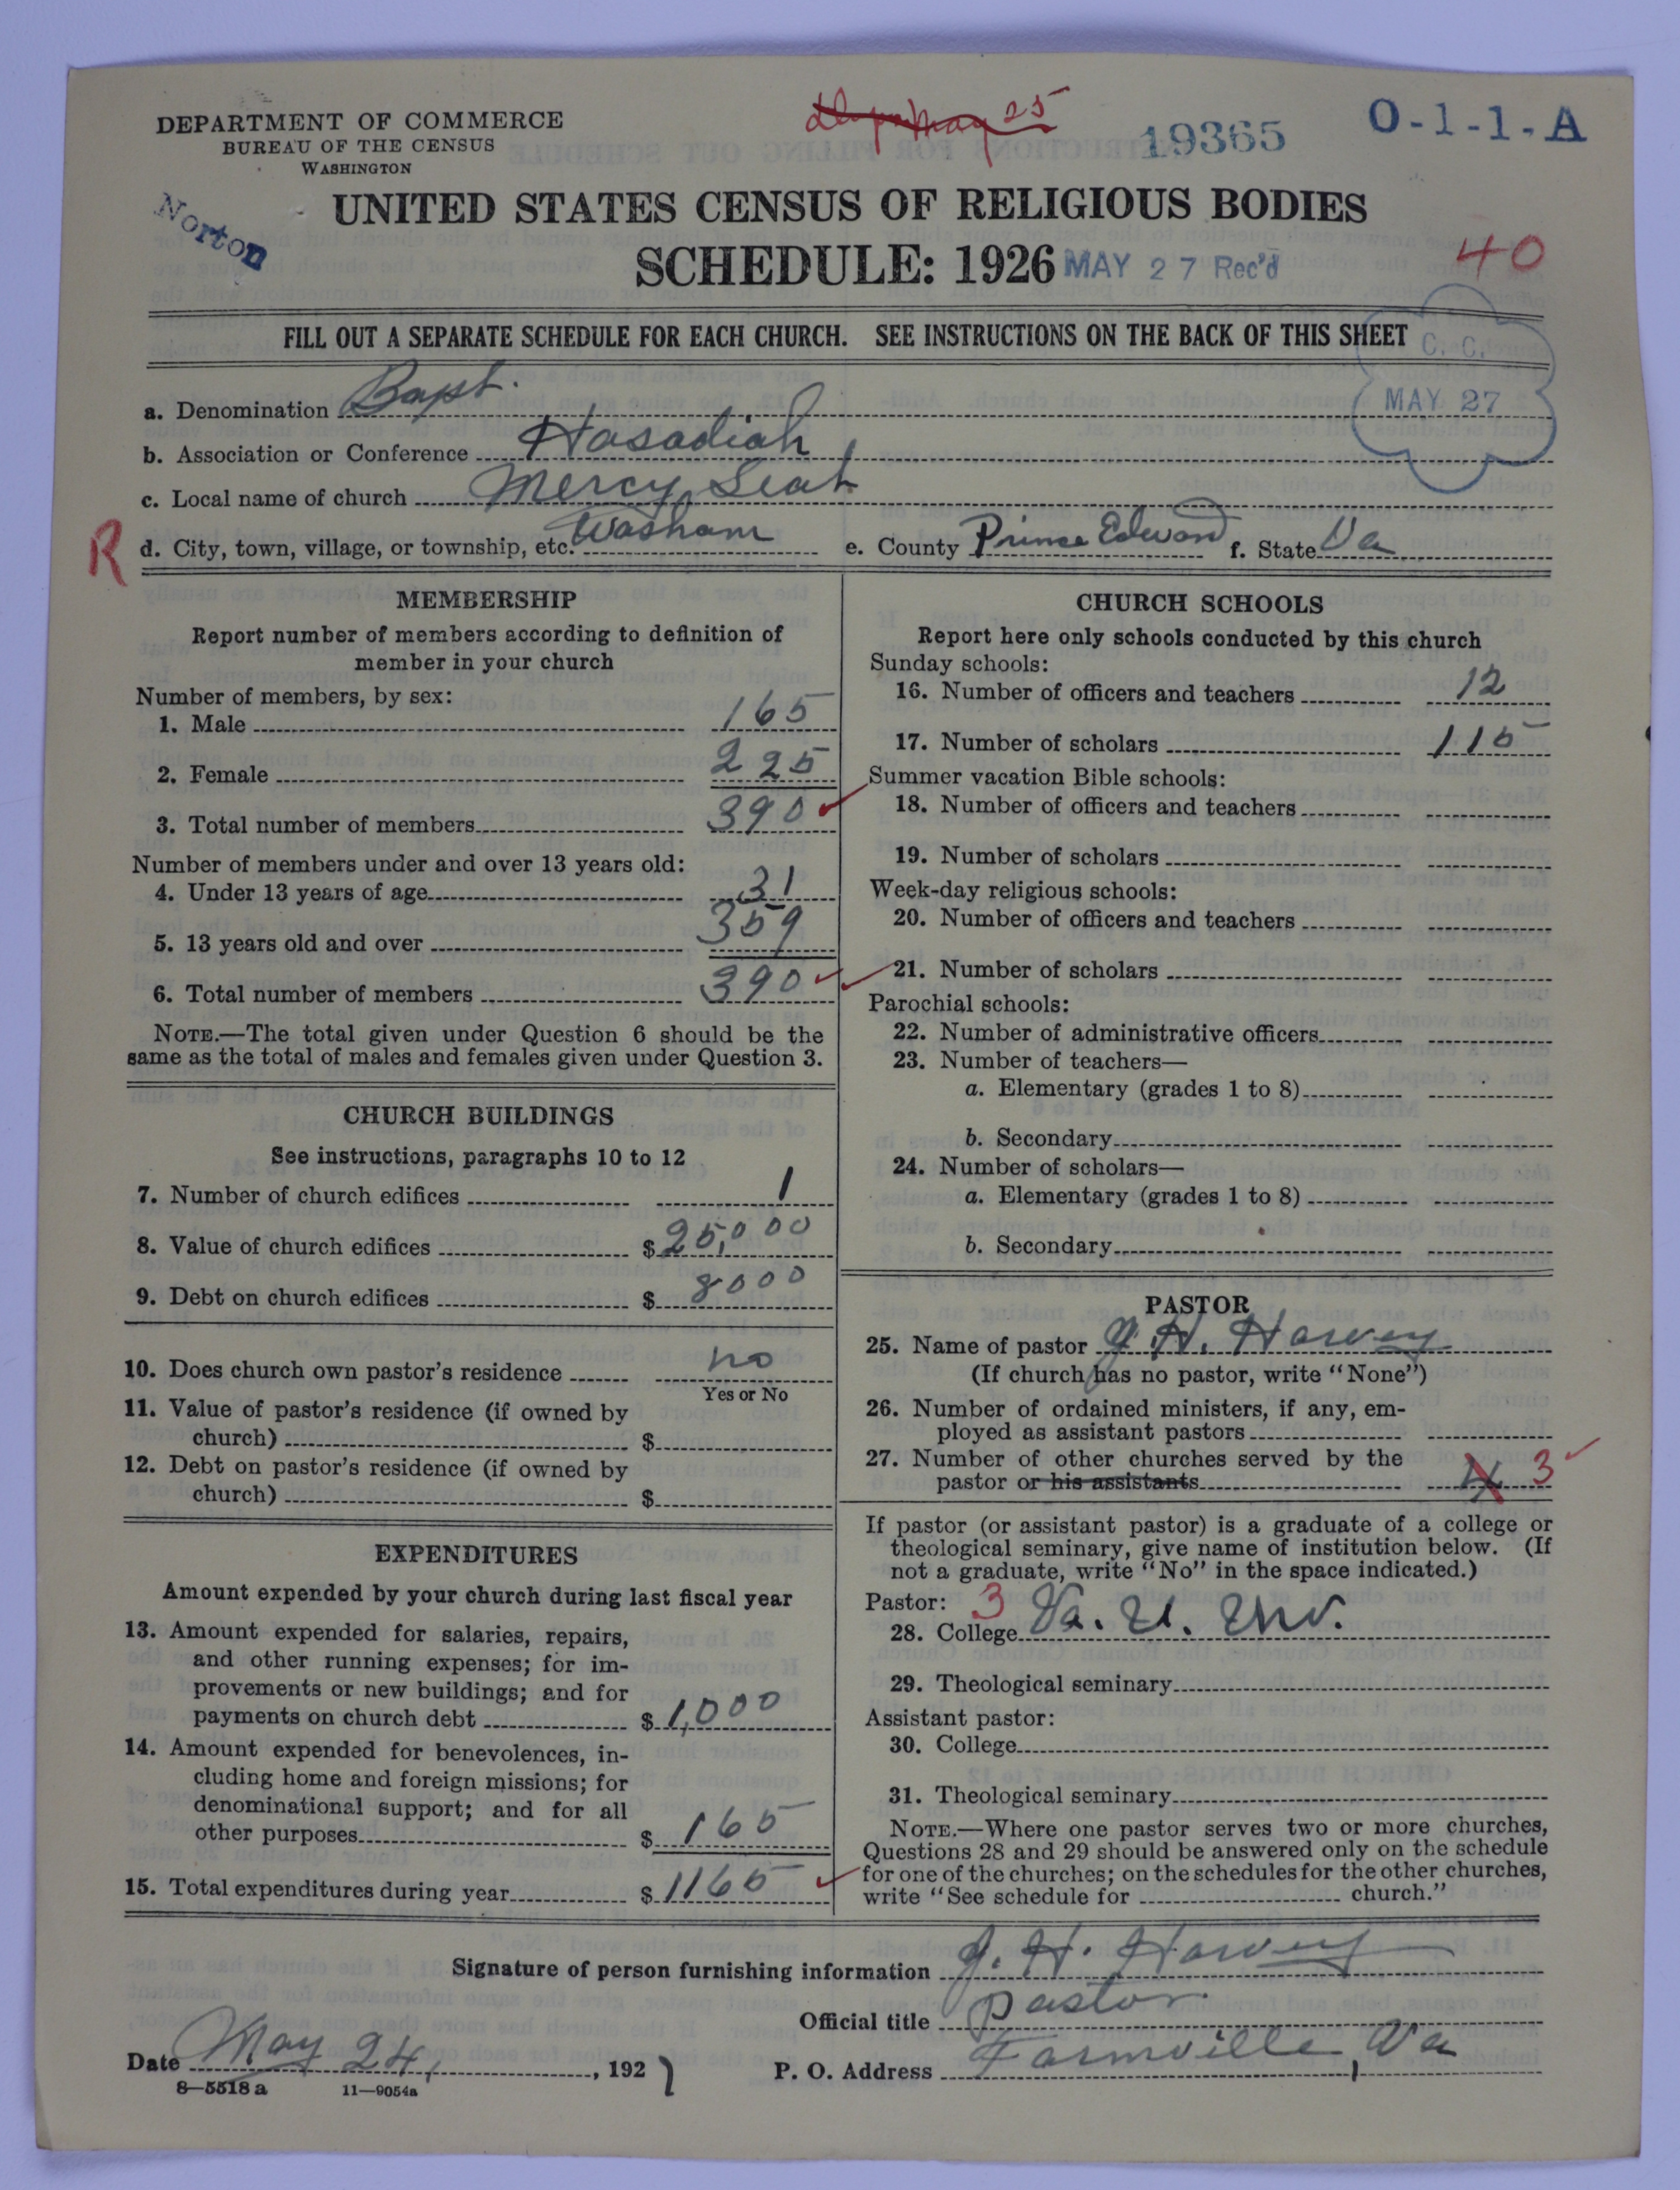 DEPARTMENT OF COMMERCE
BUREAU OF THE CENSUS
WASHINGTON
May 25
19365
O-1-1-A
Norton
UNITED STATES CENSUS OF RELIGIOUS BODIES
SCHEDULE: 1926
MAY 27 Rec'd
40
FILL OUT A SEPARATE SCHEDULE FOR EACH CHURCH. SEE INSTRUCTIONS ON THE BACK OF THIS SHEET
C. C.
MAY 27
a. Denomination Bapt.
b. Association or Conference Hasadiah
c. Local name of church Mercy Seat
R
d. City, town, village, or township, etc. Washam e. County Prince Edward f. State Va
MEMBERSHIP
Report number of members according to definition of
member in your church
Number of members, by sex:
1. Male 165
2. Female 225
3. Total number of members 390
Number of members under and over 13 years old:
4. Under 13 years of age 31
5. 13 years old and over 359
6. Total number of members 390
NOTE.—The total given under Question 6 should be the
same as the total of males and females given under Question 3.
CHURCH BUILDINGS
See instructions, paragraphs 10 to 12
7. Number of church edifices 1
8. Value of church edifices $25,000
9. Debt on church edifices $8000
10. Does church own pastor's residence no
Yes or No
11. Value of pastor's residence (if owned by
church) $
12. Debt on pastor's residence (if owned by
church) $
EXPENDITURES
Amount expended by your church during last fiscal year
13. Amount expended for salaries, repairs,
and other running expenses; for im-
provements or new buildings; and for
payments on church debt $1,000
14. Amount expended for benevolences, in-
cluding home and foreign missions; for
denominational support; and for all
other purposes $165
15. Total expenditures during year $1165
CHURCH SCHOOLS
Report here only schools conducted by this church
Sunday schools:
16. Number of officers and teachers 12
17. Number of scholars 115
Summer vacation Bible schools:
18. Number of officers and teachers
19. Number of scholars
Week-day religious schools:
20. Number of officers and teachers
21. Number of scholars
Parochial schools:
22. Number of administrative officers
23. Number of teachers—
a. Elementary (grades 1 to 8)
b. Secondary
24. Number of scholars—
a. Elementary (grades 1 to 8)
b. Secondary
PASTOR
25. Name of pastor J. H. Harvey
(If church has no pastor, write "None")
26. Number of ordained ministers, if any, em-
ployed as assistant pastors
27. Number of other churches served by the
pastor or his assistants 4 3
If pastor (or assistant pastor) is a graduate of a college or
theological seminary, give name of institution below. (If
not a graduate, write "No" in the space indicated.)
Pastor: 3
28. College Va. U. Uni.
29. Theological seminary
Assistant pastor:
30. College
31. Theological seminary
NOTE.—Where one pastor serves two or more churches,
Questions 28 and 29 should be answered only on the schedule
for one of the churches; on the schedules for the other churches,
write "See schedule for church."
Signature of person furnishing information J. H. Harvey
Official title pastor.
Date May 24, 1927 P. O. Address Farmville, Va
8—5518 a 11—9054a